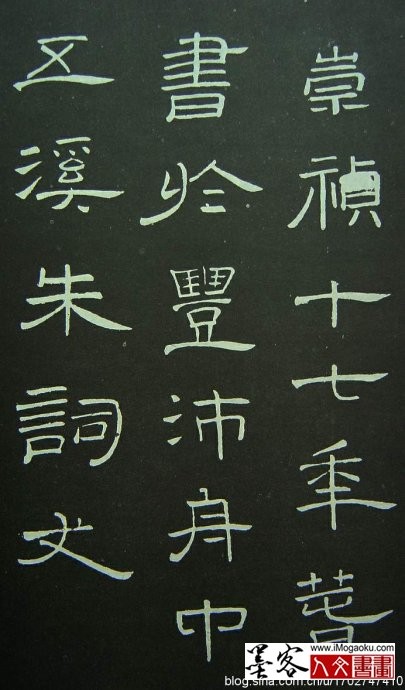 崇禎十七年萅
書於豐沛舟中
五溪朱詞丈
墨客
www.iMogaoku.com
人文書畫
blog.sina.com.cn/u/1702747410